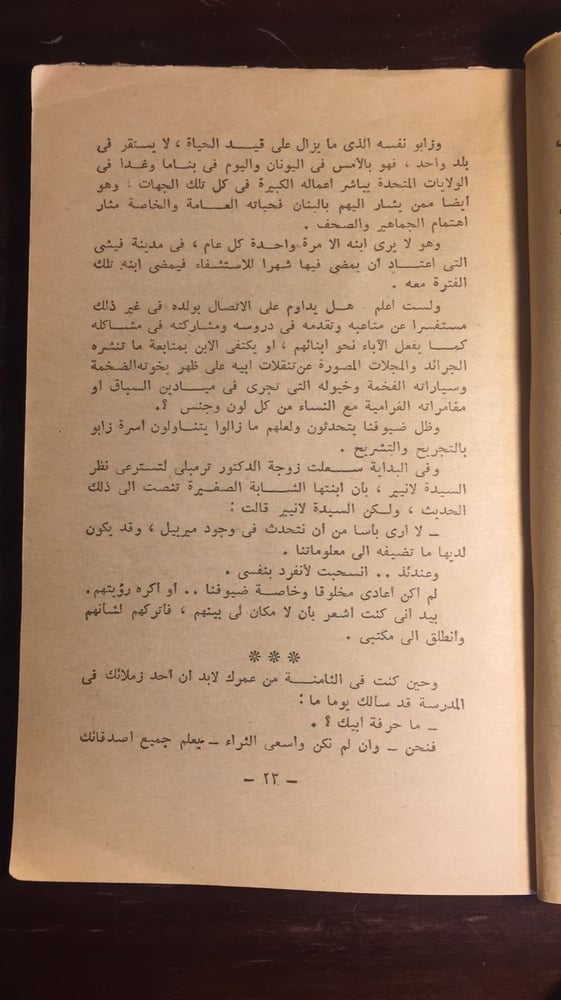 وزابو نفسه الذى ما يزال على قيـــد الحياة ، لا يستقر فى
بلد واحد ، فهو بالأمس فى اليونان واليوم فى بناما وغدا فى
الولايات المتحدة يباشر أعماله الكبيرة فى كل تلك الجهات : وهو
أيضا ممن يشار اليهم بالبنان فحياته العـــامة والخاصة مثار
اهتمام الجماهير والصحف .
وهو لا يرى ابنه الا مرة واحدة كل عام ، فى مدينة فيشى
التى اعتـــاد أن يمضى فيها شهرا للاستشفاء فيمضى ابنه تلك
الفترة معه .
ولست أعلم هـــل يداوم على الاتصال بولده فى غير ذلك
مستفسرا عن متاعبه وتقدمه فى دروسه ومشاركته فى مشاكله
كمـــا يفعل الآباء نحو أبنائهم ، أو يكتفى الابن بمتابعة ما تنشره
الجرائد والمجلات المصورة عن تنقلات أبيه على ظهر يخوته الضخمة
وسياراته الفخمة وخيوله التى تجرى فى ميـــادين السباق أو
مغامراته الغرامية مع النساء من كل لون وجنس ؟ .
وظل ضيوفنا يتحدثون ولعلهم ما زالوا يتنـــاولون أسرة زابو
بالتجريح والتشريح .
وفى البداية ســـعلت زوجة الدكتور ترمبلى لتسترعى نظر
السيدة لانيير ، بأن ابنتها الشـــابة الصغيرة تنصت الى ذلك
الحديث ، ولـــكن السيدة لانيير قالت :
ـ لا أرى بأسا من أن نتحدث فى وجود ميربيل ، وقد يكون
لديها ما تضيفه الى معلوماتنا .
وعندئذ .. انسحبت لأنفرد بنفسى .
لم أكن أعادى مخلوقا وخاصـــة ضيوفنا .. أو أكره رؤيتهم.
بيد أنى كنت أشعر بأن لا مكان لى بينهم ، فأتركهم لشأنهم
وأنطلق الى مكتبى .
***
وحين كنت فى الثامنـــة من عمرك لابد أن أحد زملائك فى
المدرسة قد سألك يوما ما :
ـ ما حرفة أبيك ؟ .
فنحن ـ وان لم نكن واسعى الثراء ـ يعلم جميع أصدقائك
ـ ٢٣ ـ